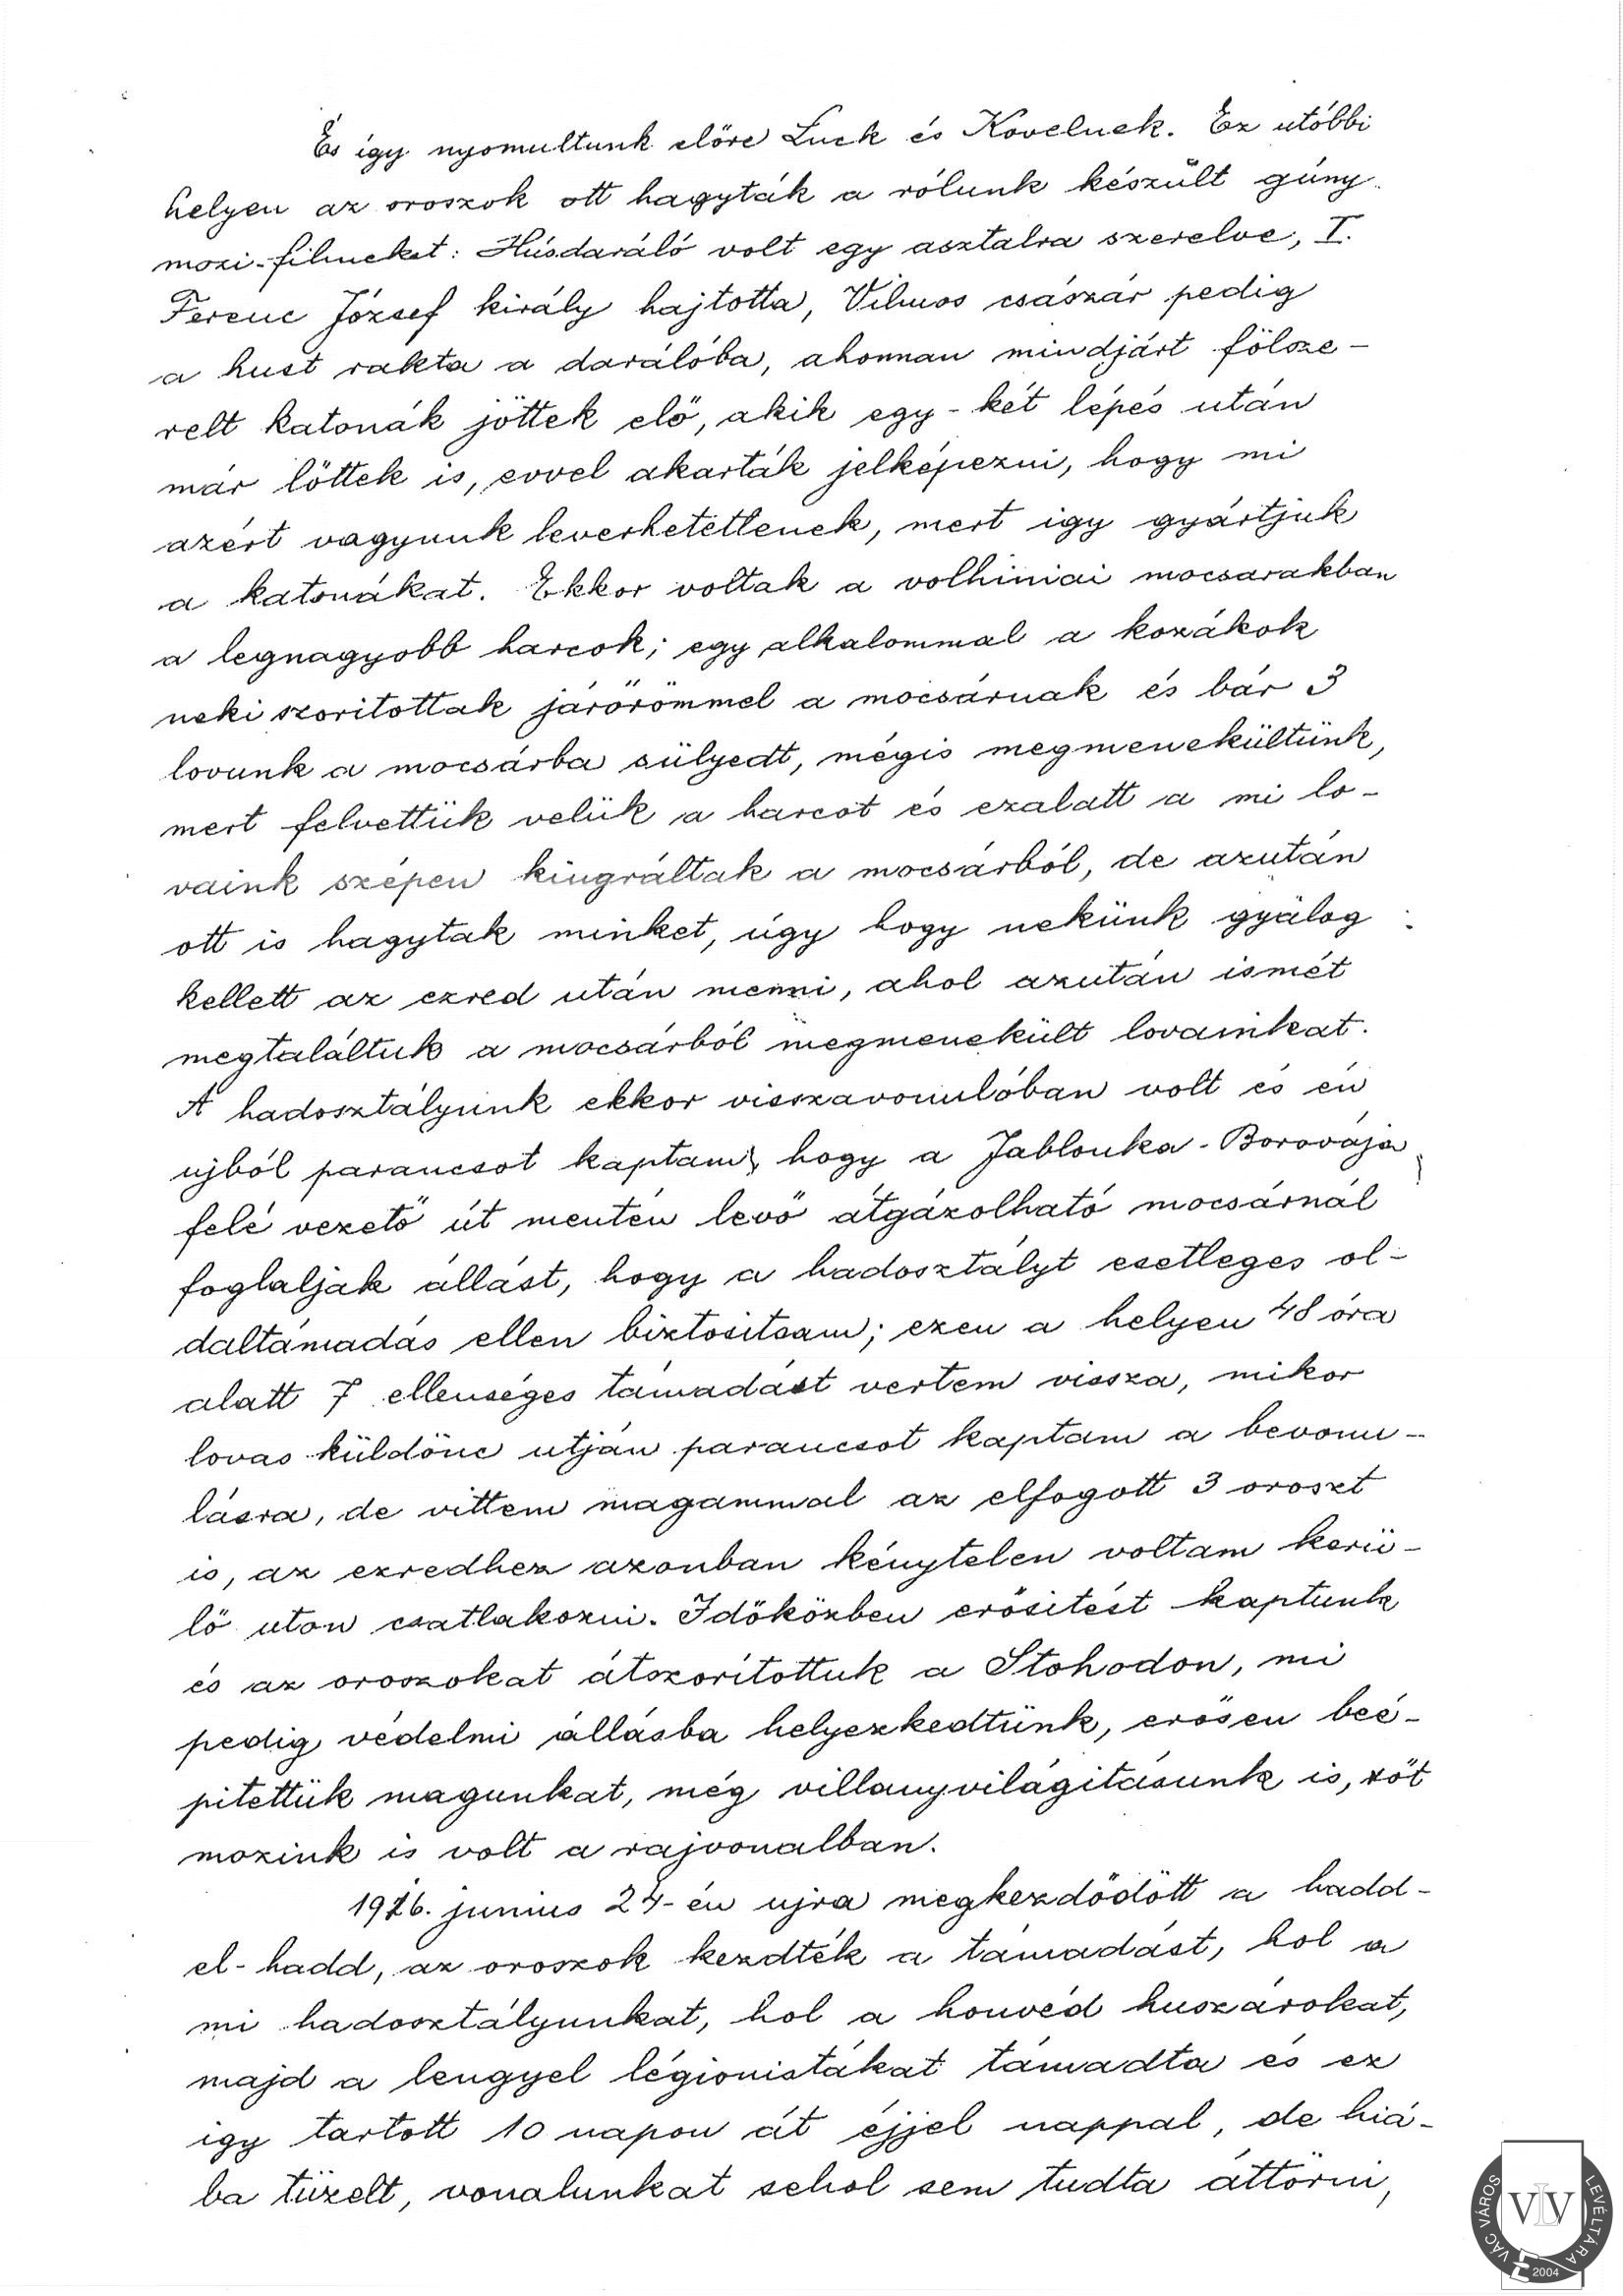 És így nyomultunk előre Luck és Kovelnek. Ez utóbbi
helyen az oroszok ott hagyták a rólunk készült gúny
mozi-filmeket: Húsdaráló volt egy asztalra szerelve, I.
Ferenc József király hajtotta, Vilmos császár pedig
a hust rakta a darálóba, ahonnan mindjárt fölsze-
relt katonák jöttek elő, akik egy-két lépés után
már lőttek is, evvel akarták jelképezni, hogy mi
azért vagyunk leverhetetlenek, mert igy gyártjuk
a katonákat. Ekkor voltak a volhiniai mocsarakban
a legnagyobb harcok; egy alkalommal a kozákok
neki szoritottak járőrömmel a mocsárnak és bár 3
lovunk a mocsárba sülyedt, mégis megmenekültünk,
mert felvettük velük a harcot és ezalatt a mi lo-
vaink szépen kiugráltak a mocsárból, de azután
ott is hagytak minket, úgy hogy nekünk gyalog
kellett az ezred után menni, ahol azután ismét
megtaláltuk a mocsárból megmenekült lovainkat.
A hadosztályunk ekkor visszavonulóban volt és én
ujból parancsot kaptam, hogy a Jablonka-Borovája
felé vezető út mentén levő átgázolható mocsárnál
foglaljak állást, hogy a hadosztályt esetleges ol-
daltámadás ellen biztositsam; ezen a helyen 48 óra
alatt 7 ellenséges támadást vertem vissza, mikor
lovas küldönc utján parancsot kaptam a bevonu-
lásra, de vittem magammal az elfogott 3 oroszt
is, az ezredhez azonban kénytelen voltam kerü-
lő uton csatlakozni. Időközben erősitést kaptunk
és az oroszokat átszorítottuk a Stohodon, mi
pedig védelmi állásba helyezkedtünk, erősen beé-
pitettük magunkat, még villanyvilágitásunk is, sőt
mozink is volt a rajvonalban.
1916. junius 24-én ujra megkezdődött a hadd-
el-hadd, az oroszok kezdték a támadást, hol a
mi hadosztályunkat, hol a honvéd huszárokat,
majd a lengyel légionistákat támadta és ez
igy tartott 10 napon át éjjel nappal, de hiá-
ba tüzelt, vonalunkat sehol sem tudta áttörni,
VÁC VÁROS LEVÉLTÁRA
VLV
2004